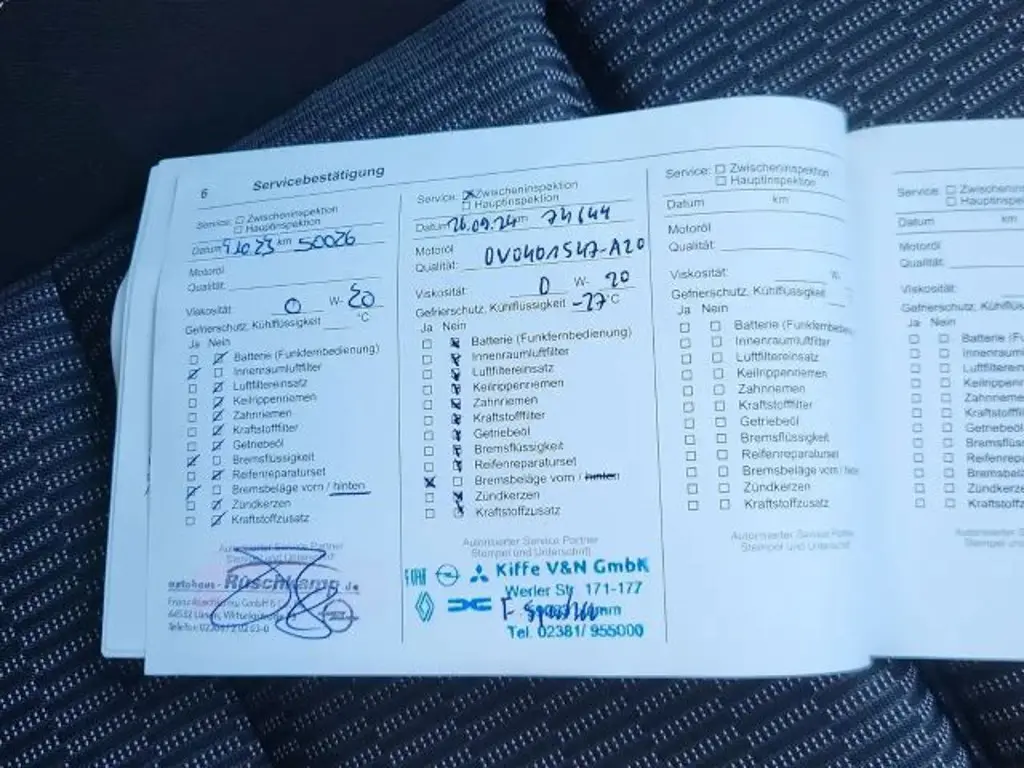 6 Servicebestätigung
Service: Zwischeninspektion
Hauptinspektion
Datum 9.10.23 km 50026
Motoröl
Qualität:
Viskosität: 0 W- 20
Gefrierschutz, Kühlflüssigkeit °C
Ja Nein
Batterie (Funkfernbedienung)
Innenraumluftfilter
Luftfiltereinsatz
Keilrippenriemen
Zahnriemen
Kraftstofffilter
Getriebeöl
Bremsflüssigkeit
Reifenreparaturset
Bremsbeläge vorn / hinten
Zündkerzen
Kraftstoffzusatz
Autorisierter Service Partner
Stempel und Unterschrift
autohaus-Rüschkamp.de
44532 Lünen, Viktoriastraße
Service: Zwischeninspektion
Hauptinspektion
Datum 26.09.24 km 74144
Motoröl
Qualität: OV0401547-A20
Viskosität: 0 W- 20
Gefrierschutz, Kühlflüssigkeit -27°C
Ja Nein
Batterie (Funkfernbedienung)
Innenraumluftfilter
Luftfiltereinsatz
Keilrippenriemen
Zahnriemen
Kraftstofffilter
Getriebeöl
Bremsflüssigkeit
Reifenreparaturset
Bremsbeläge vorn / hinten
Zündkerzen
Kraftstoffzusatz
Autorisierter Service Partner
Stempel und Unterschrift
FIAT Kiffe V&N GmbH
Werler Str. 171-177
Tel. 02381/ 955000
Service: Zwischeninspektion
Hauptinspektion
Datum km
Motoröl
Qualität:
Viskosität: W-
Gefrierschutz, Kühlflüssigkeit
Ja Nein
Batterie (Funkfernbedie
Innenraumluftfilter
Luftfiltereinsatz
Keilrippenriemen
Zahnriemen
Kraftstofffilter
Getriebeöl
Bremsflüssigkeit
Reifenreparaturset
Bremsbeläge vorn / hin
Zündkerzen
Kraftstoffzusatz
Autorisierter Service Partne
Stempel und Unterschrift
Service: Zwischeninspektion
Hauptinspektion
Datum km
Motoröl
Qualität:
Viskosität:
Gefrierschutz, Kühlflüss
Ja Nein
Batterie (Fu
Innenraum
Luftfilterei
Keilrippen
Zahnriemen
Kraftstofff
Getriebeöl
Bremsflüss
Reifenrepa
Bremsbelä
Zündkerze
Kraftstoffz